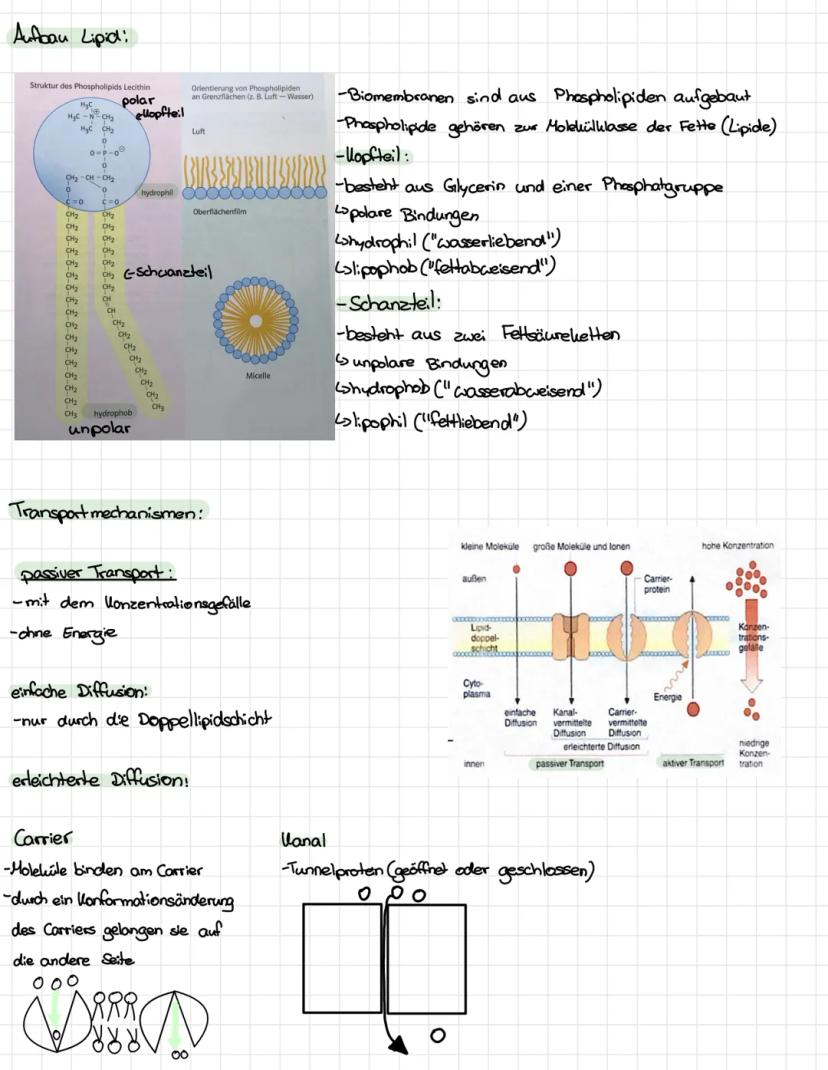 Aufbau Lipid:
Struktur des Phospholipids Lecithin
polar
←Kopfteil
H₃C
H₃C – N⊕ – CH₂
H₃C CH₂
O
O=P–O⊖
O
CH₂ – CH – CH₂
O O
C=O C=O
hydrophil
CH₂ CH₂
CH₂ CH₂
CH₂ CH₂
CH₂ CH₂
CH₂ CH₂
←Schwanzteil
CH₂ CH₂
CH₂ CH₂
CH₂ CH
CH₂ CH
CH₂ CH₂
CH₂ CH₂
CH₂ CH₂
CH₂ CH₂
CH₂ CH₂
CH₂ CH₂
CH₂ CH₃
CH₃
hydrophob
unpolar
Orientierung von Phospholipiden
an Grenzflächen (z. B. Luft – Wasser)
Luft
Oberflächenfilm
Micelle
-Biomembranen sind aus Phospholipiden aufgebaut
-Phospholipide gehören zur Molekülklasse der Fette (Lipide)
-Kopfteil:
-besteht aus Glycerin und einer Phosphatgruppe
↳polare Bindungen
↳hydrophil ("wasserliebend")
↳lipophob ("fettabweisend")
-Schanzteil:
-besteht aus zwei Fettsäureketten
↳unpolare Bindungen
↳hydrophob ("wasserabweisend")
↳lipophil ("fettliebend")
Transportmechanismen:
passiver Transport:
-mit dem Konzentrationsgefälle
-ohne Energie
einfache Diffusion:
-nur durch die Doppellipidschicht
kleine Moleküle
große Moleküle und Ionen
hohe Konzentration
außen
Carrier-
protein
Lipid-
doppel-
schicht
Konzen-
trations-
gefälle
Cyto-
plasma
Energie
einfache
Diffusion
Kanal-
vermittelte
Diffusion
Carrier-
vermittelte
Diffusion
erleichterte Diffusion
niedrige
Konzen-
tration
innen
passiver Transport
aktiver Transport
erleichterte Diffusion:
Carrier
-Moleküle binden am Carrier
-durch ein Konformationsänderung
des Carriers gelangen sie auf
die andere Seite
Kanal
-Tunnelproten (geöffnet oder geschlossen)